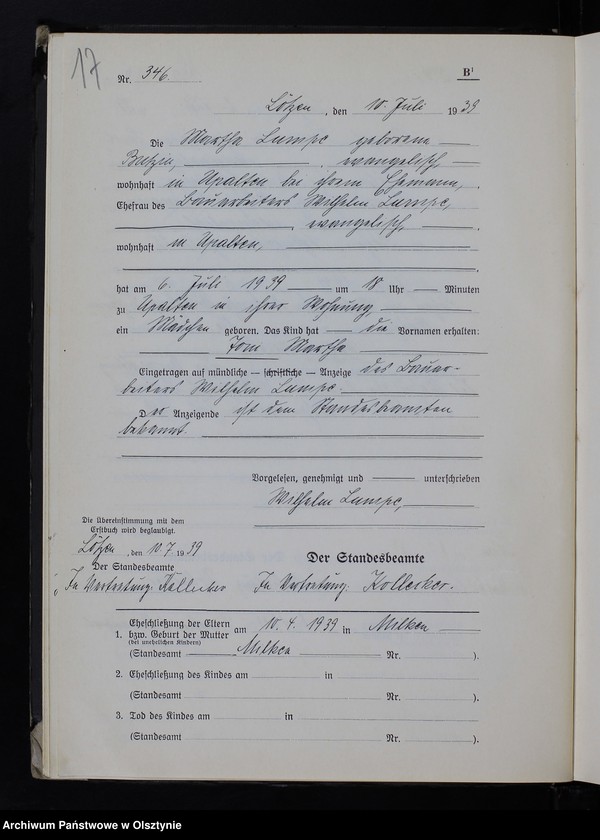 17
Nr. 346.
B¹
Lötzen, den 10. Juli 1939
Die Martha Lumpe geborene
evangelisch,
wohnhaft in Upalten bei ihrem Ehemann,
Ehefrau des Bauarbeiters Wilhelm Lumpe,
evangelisch,
wohnhaft in Upalten,
hat am 6. Juli 1939 um 18 Uhr Minuten
zu Upalten in ihrer Wohnung,
ein Mädchen geboren. Das Kind hat die Vornamen erhalten:
Martha
Eingetragen auf mündliche — schriftliche — Anzeige des Bauar-
beiters Wilhelm Lumpe.
Der Anzeigende ist dem Standesbeamten
bekannt.
Vorgelesen, genehmigt und unterschrieben
Wilhelm Lumpe,
Die Übereinstimmung mit dem
Erstbuch wird beglaubigt.
Lötzen, den 10.7.1939
Der Standesbeamte
In Vertretung:
Der Standesbeamte
In Vertretung:
1. Eheschließung der Eltern
bzw. Geburt der Mutter am 10.4.1939 in Milken
(bei unehelichen Kindern)
(Standesamt Milken Nr. ).
2. Eheschließung des Kindes am in
(Standesamt Nr. ).
3. Tod des Kindes am in
(Standesamt Nr. ).
Archiwum Państwowe w Olsztynie